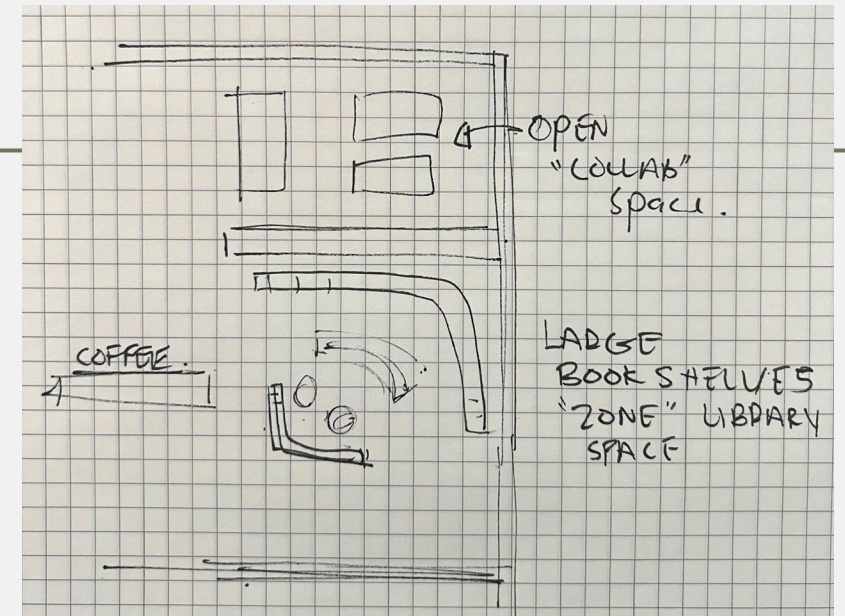 OPEN
"COLLAB"
Space.
COFFEE.
LARGE
BOOKSHELVES
"ZONE" LIBRARY
SPACE